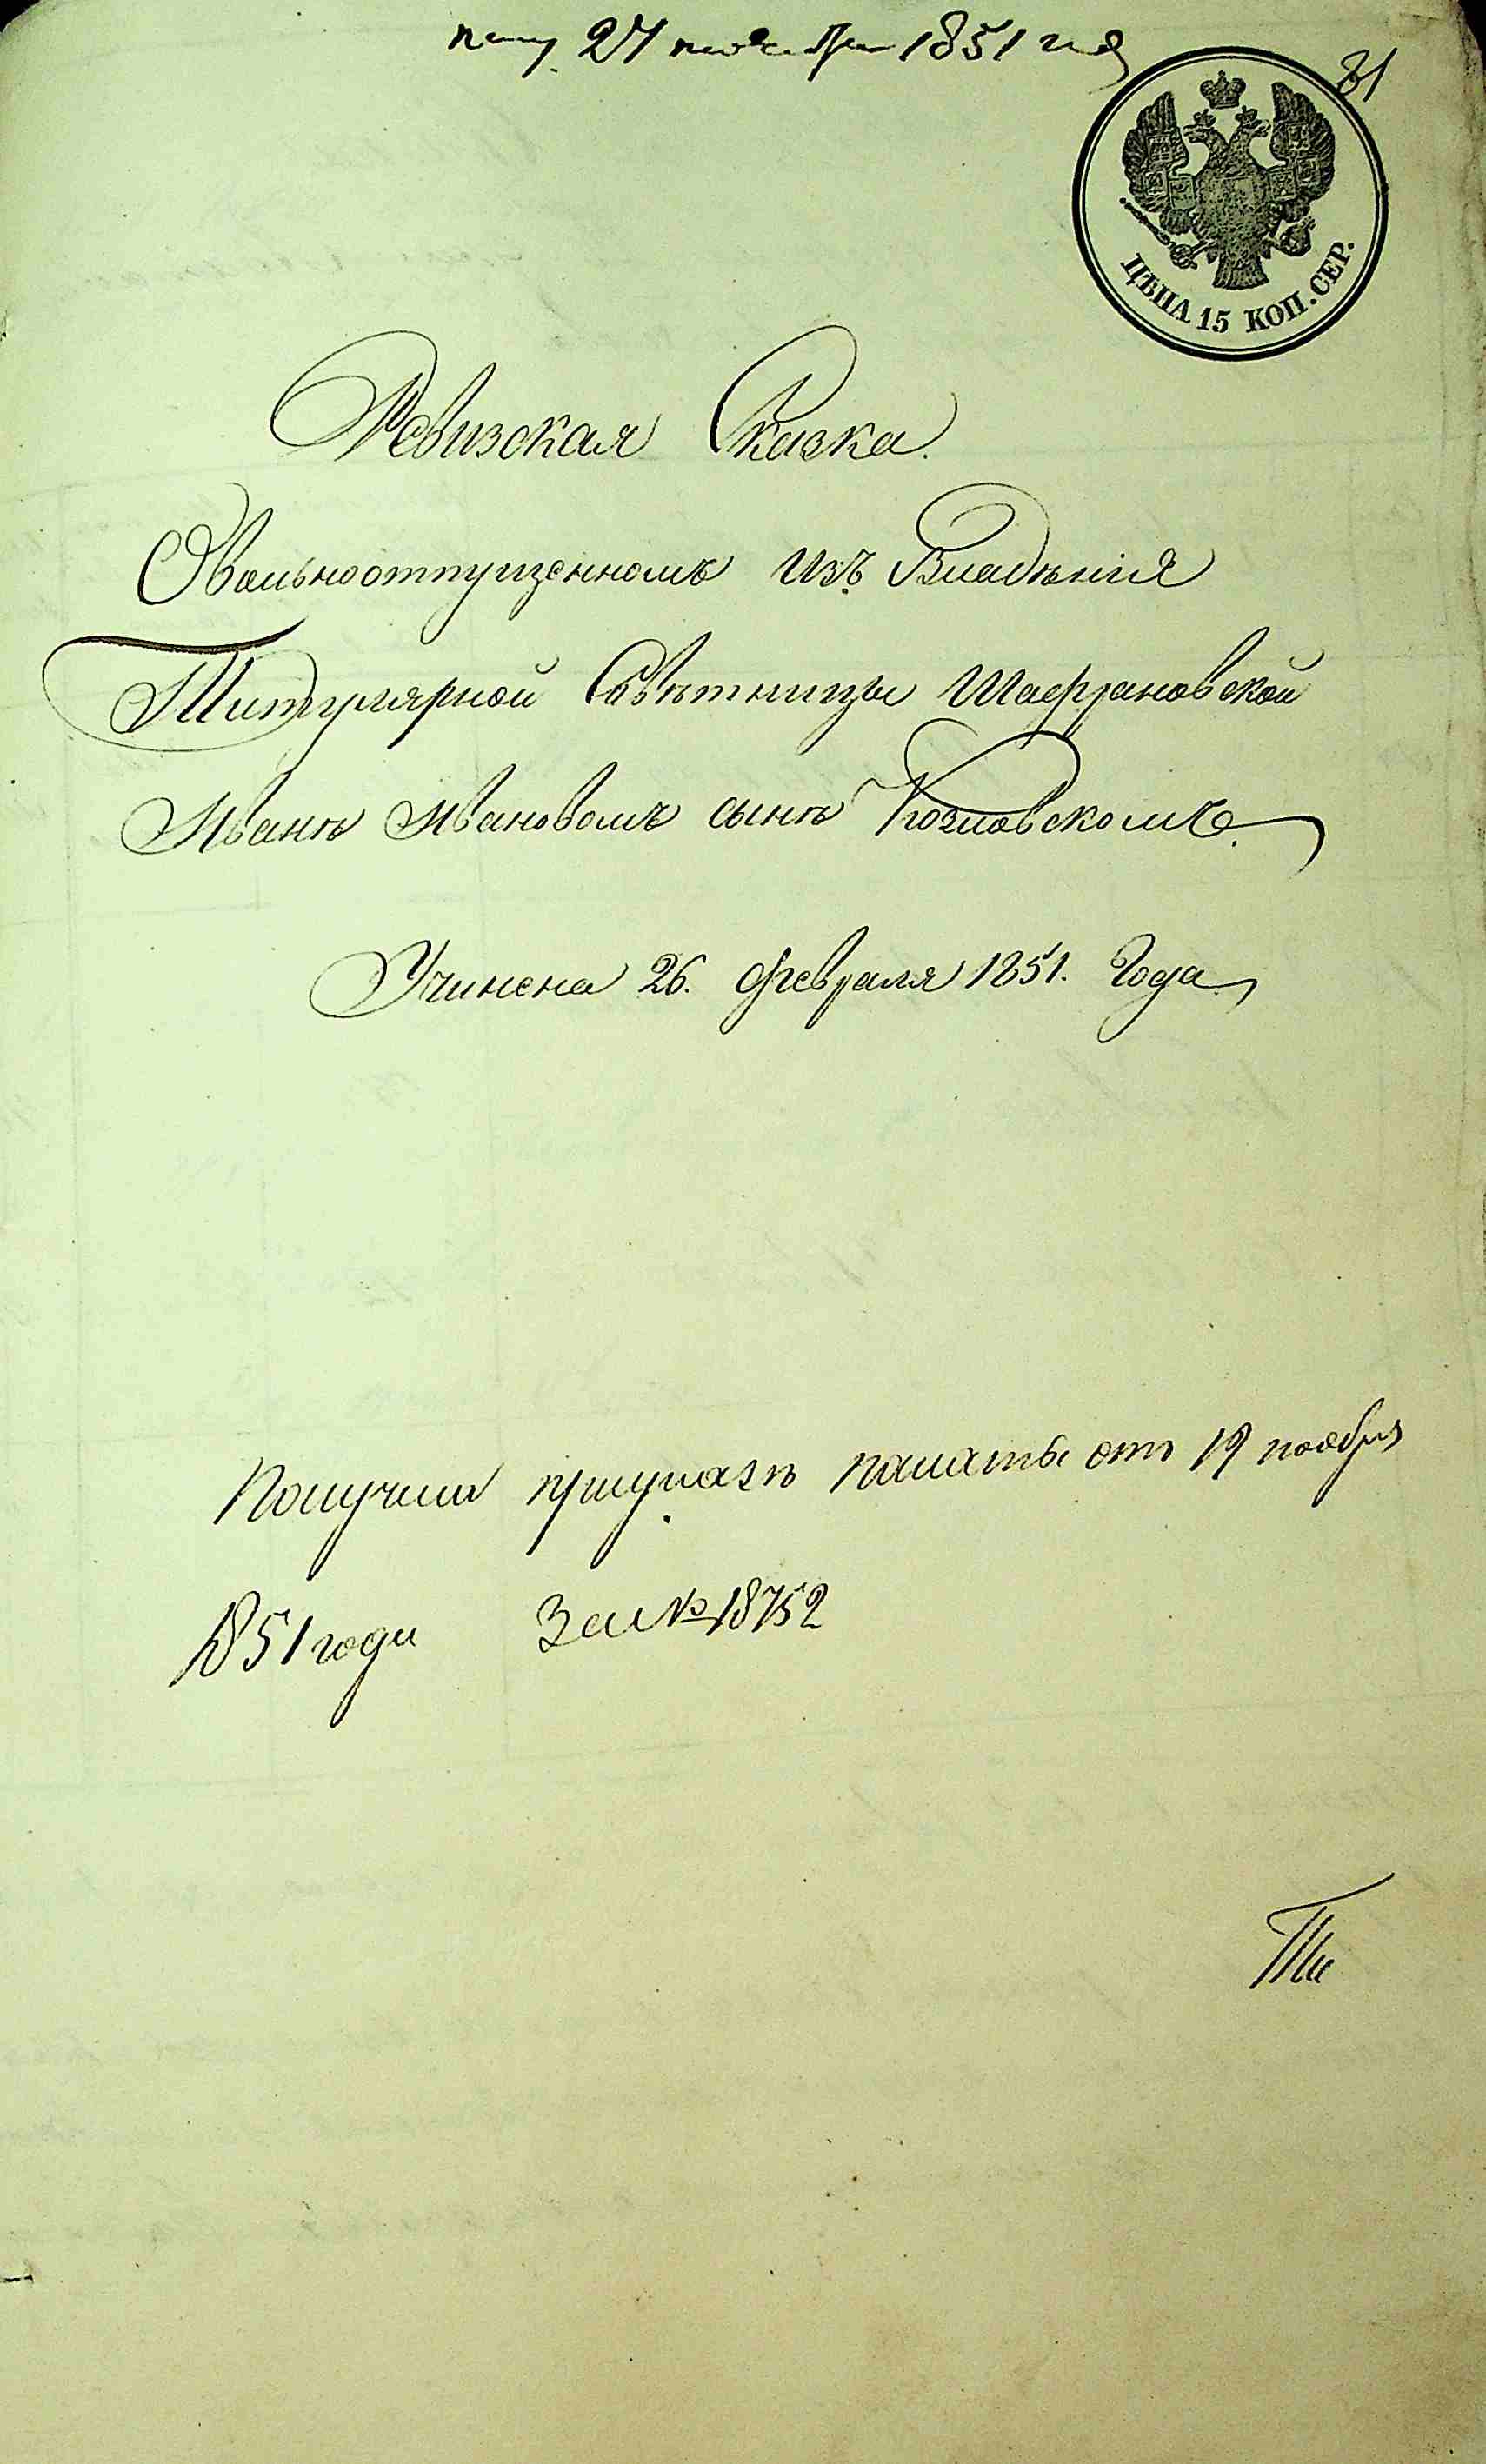 пол. 27 ноября 1851 года
31
ЦѢНА 15 КОП. СЕР.
Ревизская Сказка.
О Вольноотпущенномъ изъ Владѣнія
Титулярной Совѣтницы Шафрановской
Иванѣ Ивановомъ сынѣ Козловскомъ.
Учинена 26. февраля 1851. Года
Получена при указѣ палаты отъ 19 ноября
1851 года За № 18752
Ти